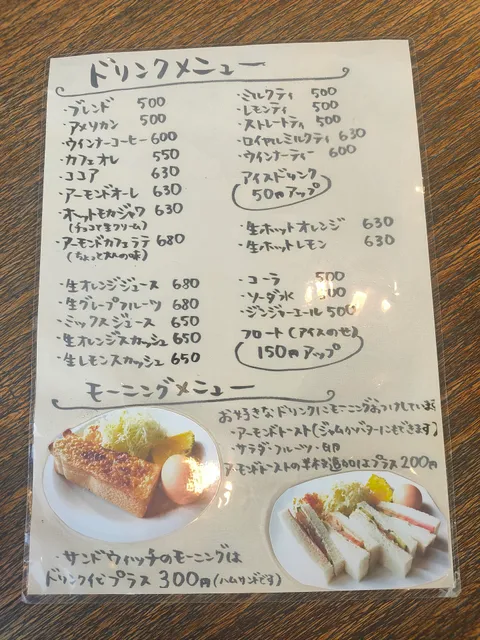 ドリンクメニュー
・ブレンド 500
・アメリカン 500
・ウインナーコーヒー 600
・カフェオレ 550
・ココア 630
・アーモンドオーレ 630
・ホットモカジャワ 630
(チョコと生クリーム)
・アーモンドカフェラテ 680
(ちょっと大人の味)
・生オレンジジュース 680
・生グレープフルーツ 680
・ミックスジュース 650
・生オレンジスカッシュ 650
・生レモンスカッシュ 650
・ミルクティ 500
・レモンティ 500
・ストレートティ 500
・ロイヤルミルクティ 630
・ウインナーティー 600
アイスドリンク
50円アップ
・生ホットオレンジ 630
・生ホットレモン 630
・コーラ 500
・ソーダ水 500
・ジンジャーエール 500
フロート(アイスのせ)
150円アップ
モーニングメニュー
お好きなドリンクにモーニングおつけしています
・アーモンドトースト(ジャムやバターにもできます)
・サラダ・フルーツ・
アーモンドトーストの単木追加はプラス 200円
・サンドウィッチのモーニングは
ドリンク代プラス 300円(ハムサンドです)